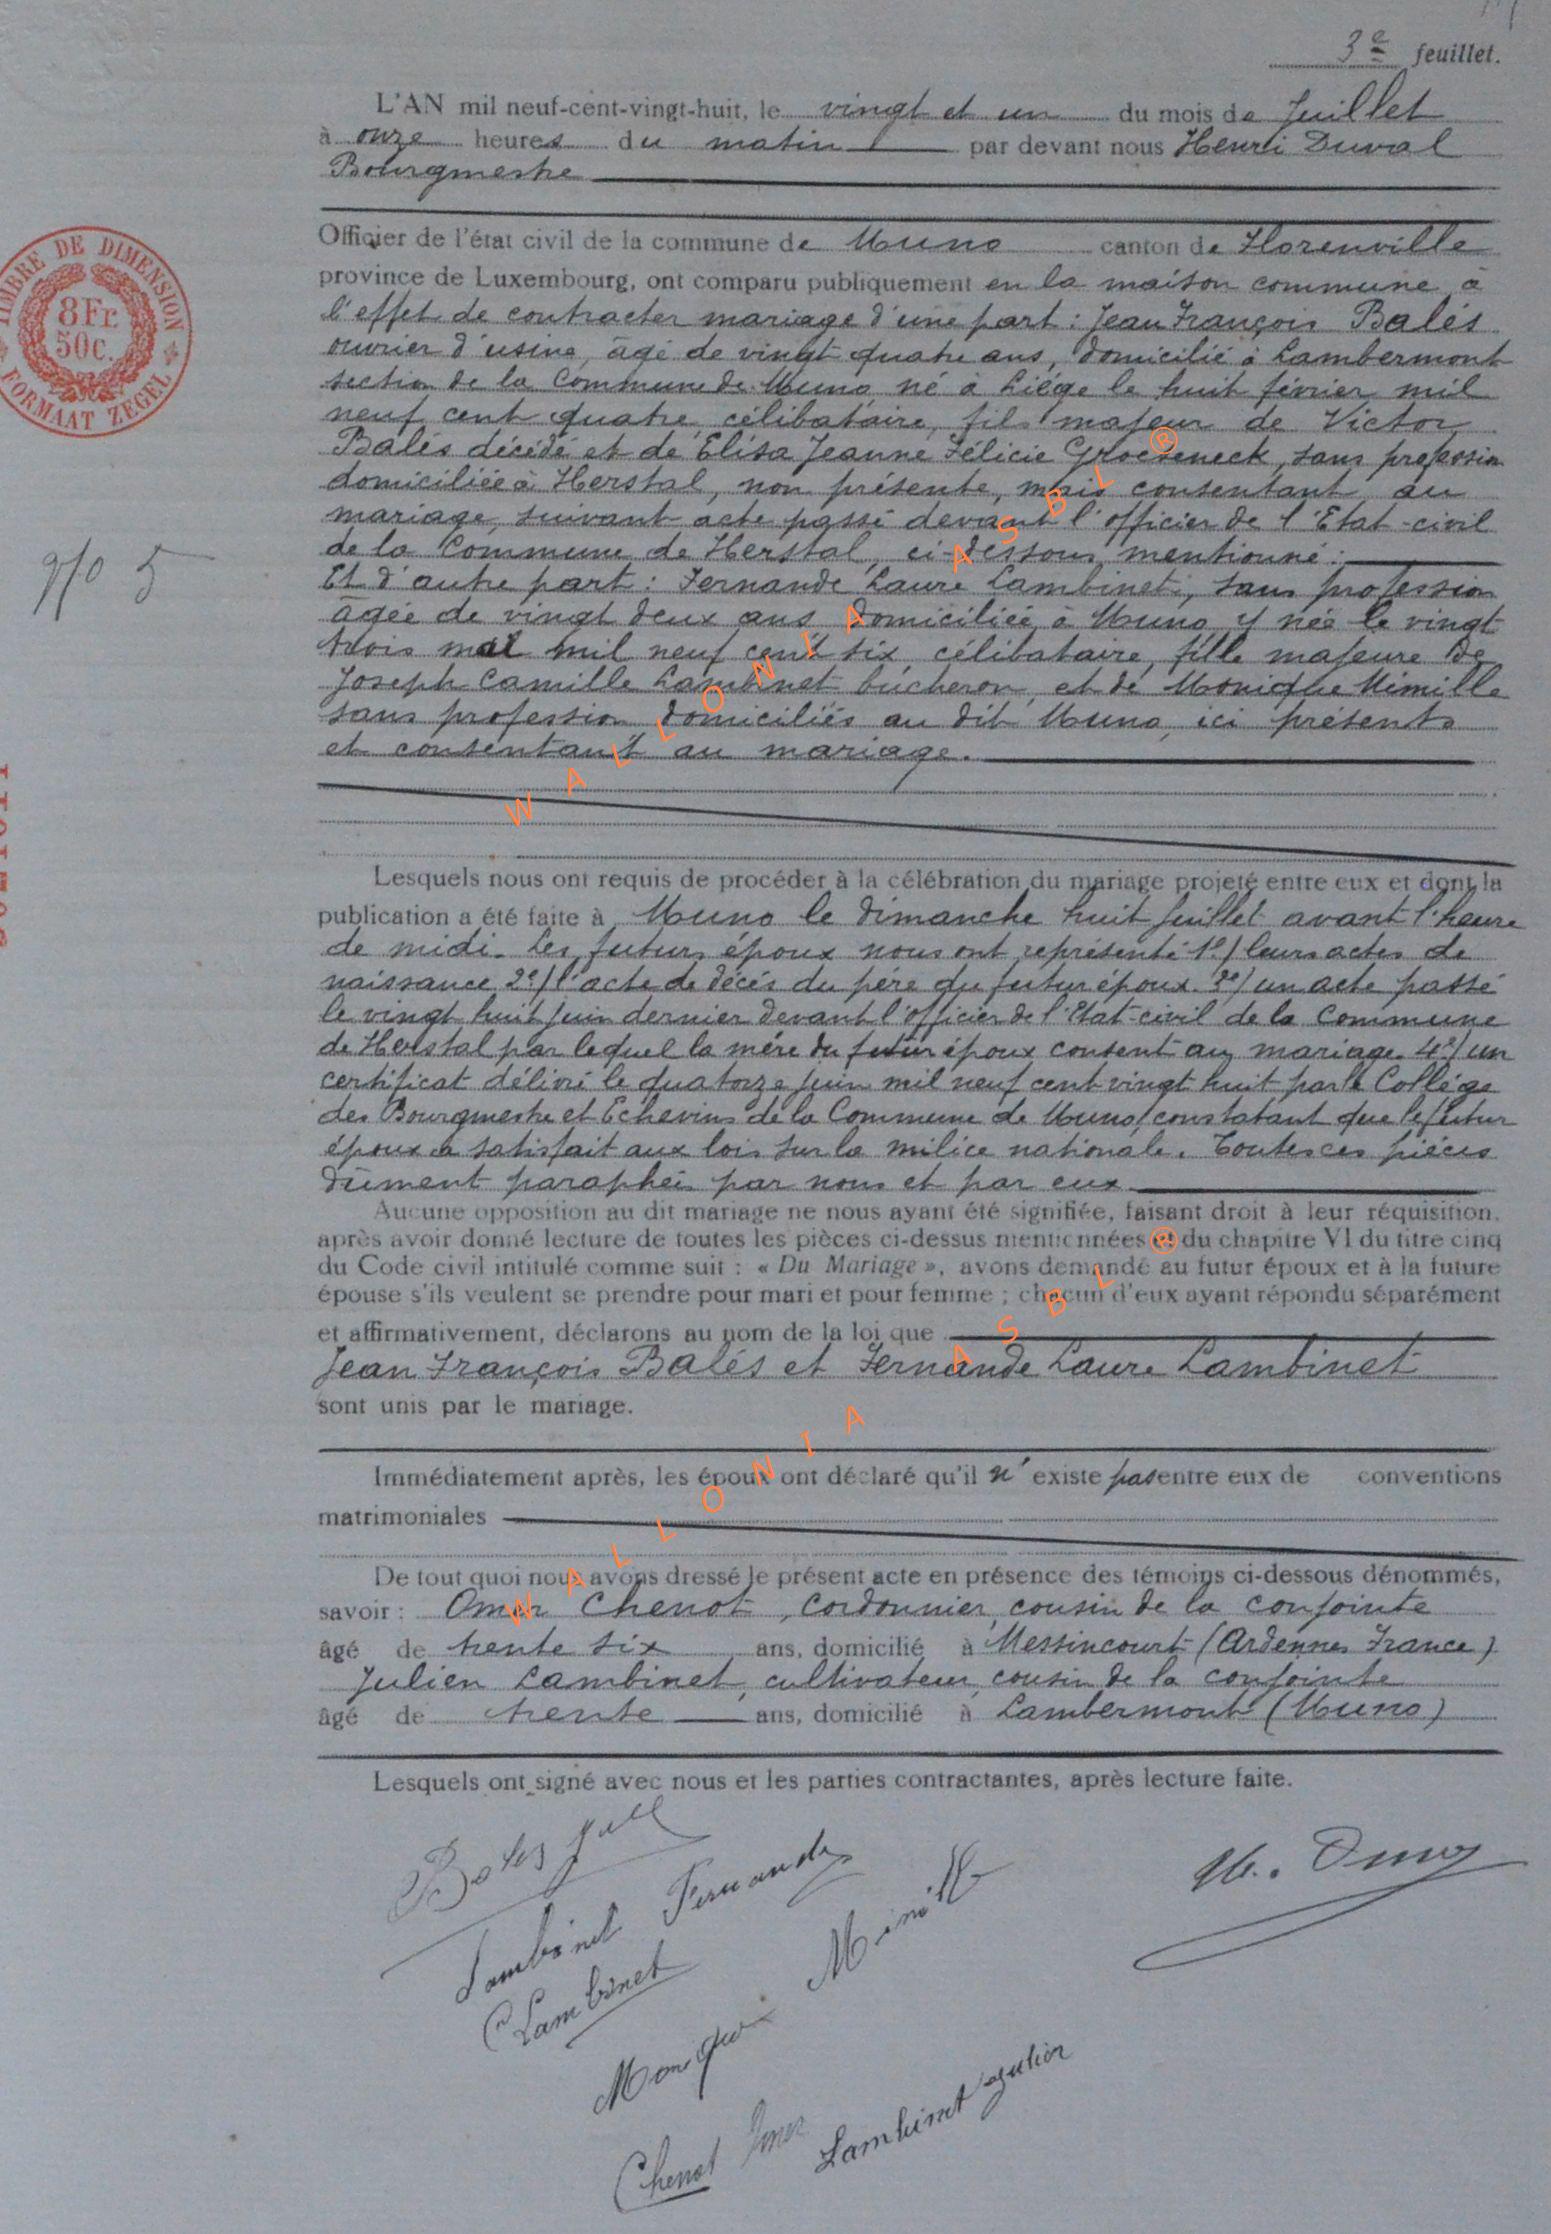 3e feuillet.
L'AN mil neuf-cent-vingt-huit, le vingt et un du mois de Juillet
à onze heures du matin par devant nous Henri Duval
Bourgmestre
Officier de l'état civil de la commune de Muno canton de Florenville
province de Luxembourg, ont comparu publiquement en la maison commune à
l'effet de contracter mariage d'une part : Jean François Balés
ouvrier d'usine, âgé de vingt quatre ans, domicilié à Lambermont
section de la Commune de Muno, né à Liége le huit février mil
neuf cent quatre, célibataire, fils majeur de Victor
Balés décédé et de Elisa Jeanne Félicie Groeseneck, sans profession
domiciliée à Herstal, non présente, mais consentant au
mariage, suivant acte passé devant l'officier de l'Etat-civil
de la Commune de Herstal, ci-dessous mentionné :
Et d'autre part : Fernande Laure Lambinet, sans profession
âgée de vingt deux ans domiciliée à Muno, y née le vingt
trois mai mil neuf cent six, célibataire, fille majeure de
Joseph Camille Lambinet bûcheron, et de Monique Mimille
sans profession domiciliés au dit Muno, ici présents
et consentant au mariage.
Lesquels nous ont requis de procéder à la célébration du mariage projeté entre eux et dont la
publication a été faite à Muno le dimanche huit juillet avant l'heure
de midi. Les futurs époux nous ont représenté 1e/ leurs actes de
naissance 2e/ l'acte de décés du pére du futur époux. 3e/ un acte passé
le vingt huit juin dernier devant l'officier de l'Etat-civil de la Commune
de Herstal par lequel la mére du futur époux consent au mariage. 4e/ un
certificat délivré le quatorze juin mil neuf cent vingt huit par le Collége
des Bourgmestre et Echevins de la Commune de Muno, constatant que le futur
époux a satisfait aux lois sur la milice nationale. Toutes ces piéces
dûment paraphés par nous et par eux.
Aucune opposition au dit mariage ne nous ayant été signifiée, faisant droit à leur réquisition,
après avoir donné lecture de toutes les pièces ci-dessus mentionnées et du chapitre VI du titre cinq
du Code civil intitulé comme suit : « Du Mariage », avons demandé au futur époux et à la future
épouse s'ils veulent se prendre pour mari et pour femme ; chacun d'eux ayant répondu séparément
et affirmativement, déclarons au nom de la loi que
Jean François Balés et Fernande Laure Lambinet
sont unis par le mariage.
Immédiatement après, les époux ont déclaré qu'il n'existe pas entre eux de conventions
matrimoniales
De tout quoi nous avons dressé le présent acte en présence des témoins ci-dessous dénommés,
savoir : Omer Chenot, cordonnier, cousin de la conjointe
âgé de trente six ans, domicilié à Messincourt (Ardennes France)
Julien Lambinet, cultivateur, cousin de la conjointe
âgé de trente ans, domicilié à Lambermont (Muno)
Lesquels ont signé avec nous et les parties contractantes, après lecture faite.
Lambinet Fernande
Lambinet
Monique Mimille
Chenot Omer
Lambinet Julien
TIMBRE DE DIMENSION
8 Fr.
50 C.
FORMAAT ZEGEL
No 5
WALLONIA ASBL ®
WALLONIA ASBL ®